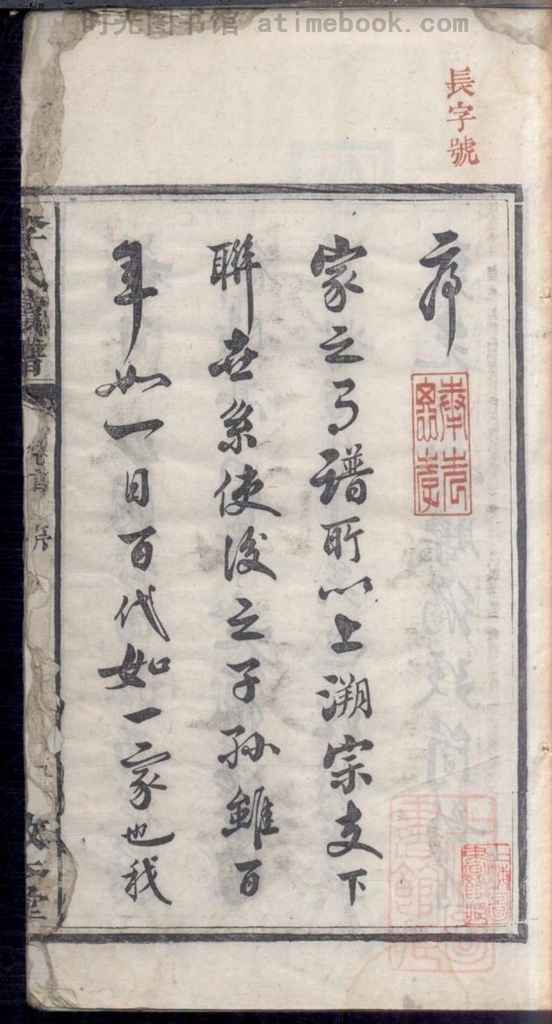 时光图书馆 atimebook.com
長字號
序
家之有譜所以上溯宗支下
聯世系使後之子孫雖百
年如一日百代如一家也我
李氏宗譜
卷首 序